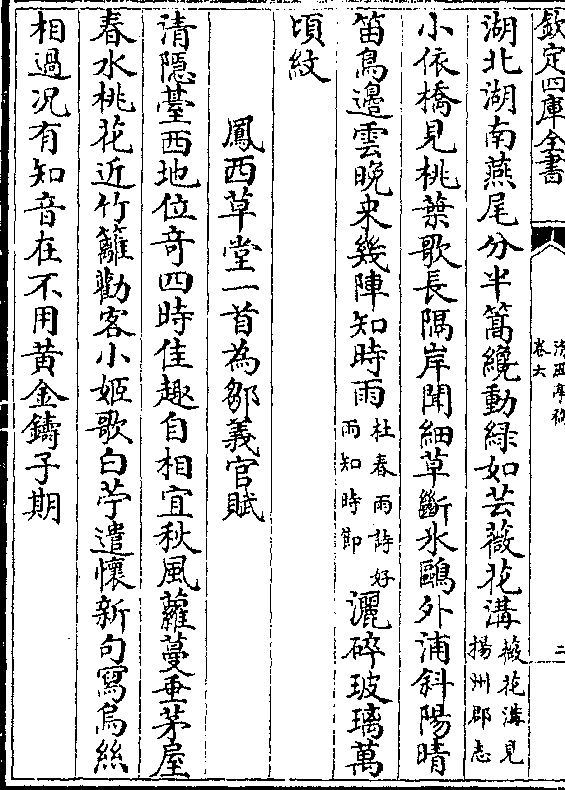 欽定四庫全書
清風亭稿
卷六
二
湖北湖南燕尾分半篙纔動緑如芸薇花溝薇花溝見揚州郡志
小依橋見桃葉歌長隔岸聞細草斷氷鷗外浦斜陽晴
笛鳥邊雲晚来幾陣知時雨杜春雨詩好雨知時節灑碎玻璃萬
頃紋
鳳西草堂一首為鄒義官賦
清隠臺西地位竒四時佳趣自相宜秋風蘿蔓垂茅屋
春水桃花近竹籬勸客小姬歌白苧遣懷新句寫烏絲
相過况有知音在不用黄金鑄子期